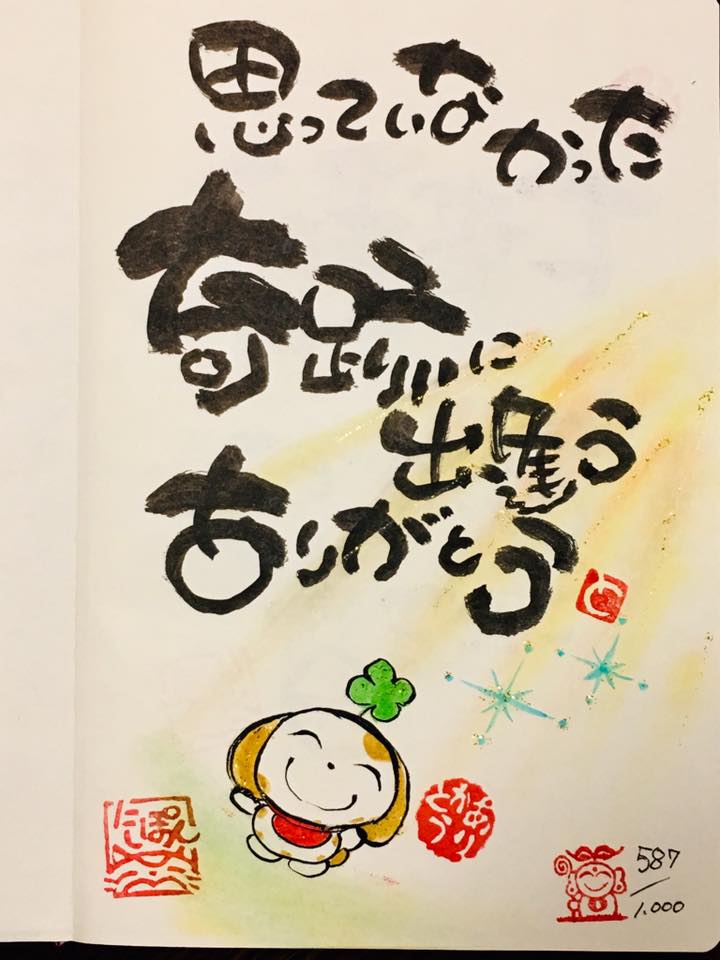 思っていなかった
奇跡に
出逢う
ありがとう
ありがとう
587
1.000